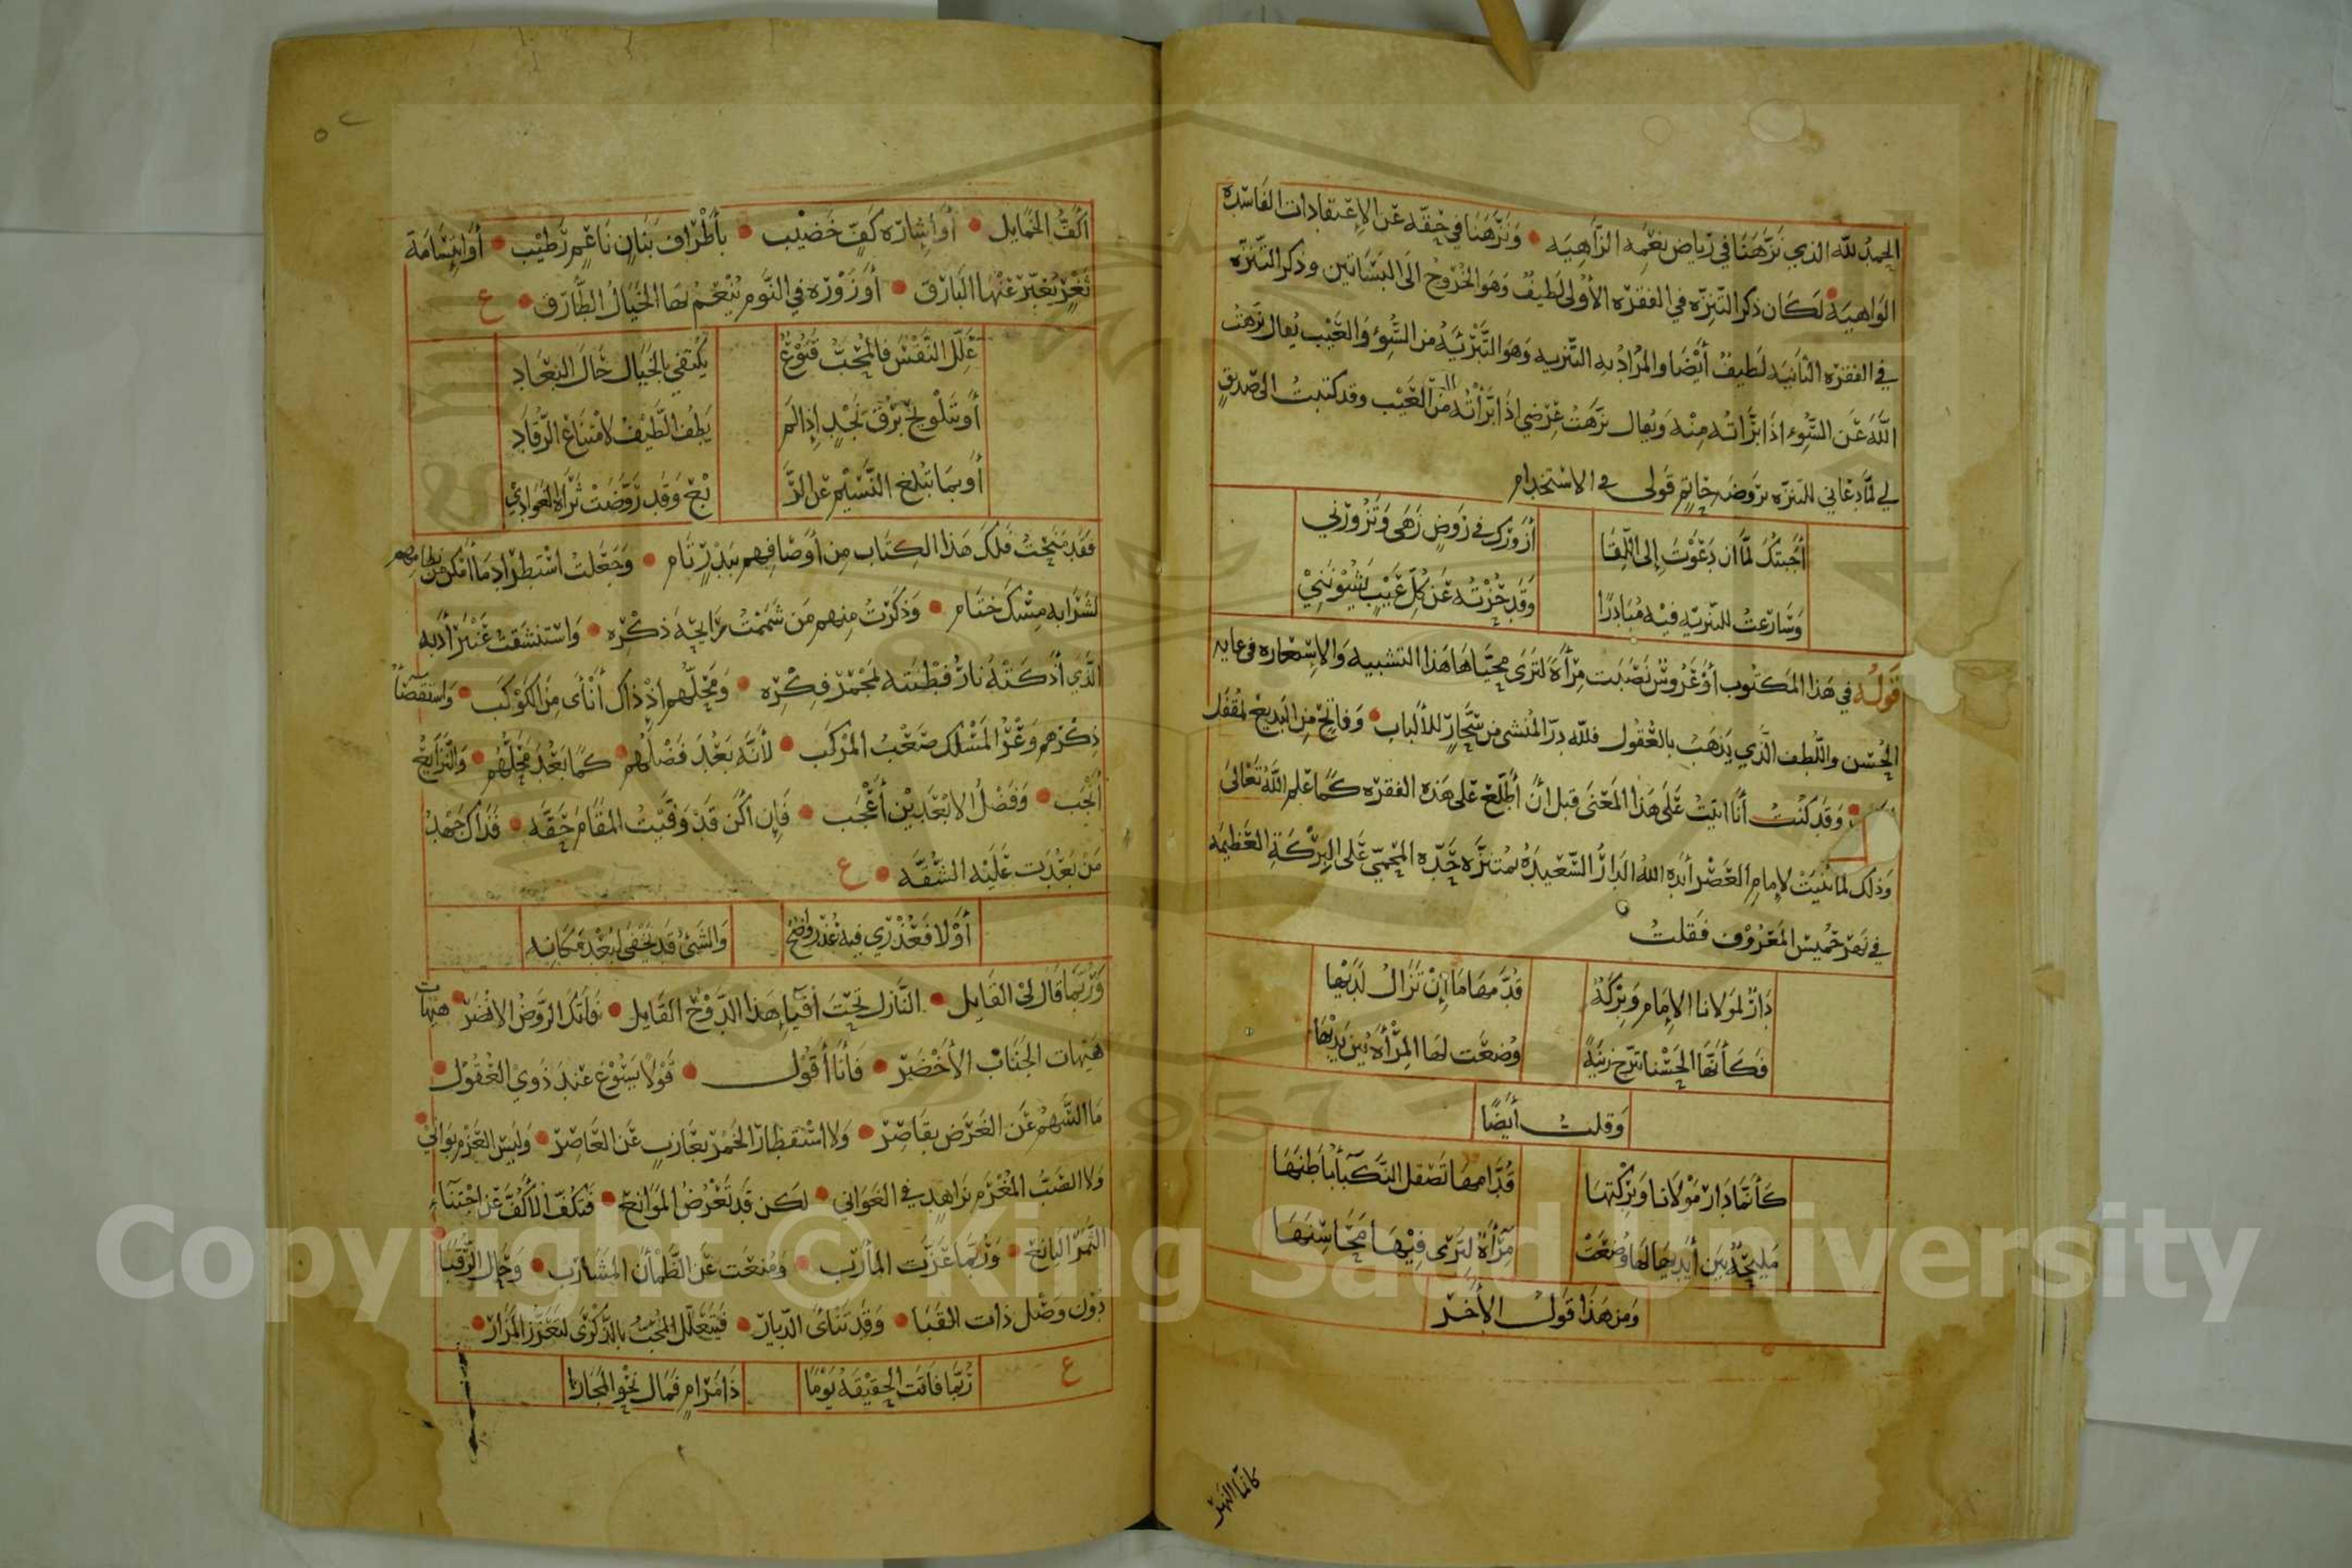 الحمد لله الذي نزهنا في رياض نعمه الزاهيه • ونزهنا في حقه عن الاعتقادات الفاسده
الواهيه • لكان ذكر التنزه في الفقره الأولى لطيف وهو الخروج الى البساتين وذكر التنزه
في الفقره الثانيه لطيف أيضا والمراد به التنزيه وهو التبرئه من السوء والعيب يقال نزهت
الله عن السوء اذا برأته منه ويقال نزهت عرضي اذا برأته من العيب وقد كتبت الى صديق
لي لما دعاني للتنزه بروضه حاتم قولى في الاستخدام
أجبتك لما ان دعوت إلى اللقا أزورك في روض زهى وتزورني
وسارعت للتنزيه فيه مبادرا وقد حزته عن كل عيب يشيونني
قوله في هذا المكتوب أو عروش نصبت مرأة لترى محياها هذا التشبيه والإستعاره في غايه
الحسن واللطف الذي يذهب بالعقول فلله در المنشى من سحار للألباب • وفاتح من البديع لمقفل
• وقد كنت أنا اتيت على هذا المعنى قبل ان أطلع على هذه الفقره كما علم الله تعالى
وذلك لما بنيت لإمام العصر أيده الله الدار السعيده بمتنزه جده المحمي على البركة العظيمه
في نهر خميس المعروف فقلت
دار لمولانا الإمام وبركة قدامها ما إن تزال لديها
فكأنها الحسنا تبرج زينة وضعت لها المرأة بين يديها
وقلت أيضا
كأنما دار مولانا وبركتها قدامها تصقل النكبا أباطنها
مليحة بين أيديها لها وضعت مرأة لترى فيها محاسنها
ومن هذا قول الأخر
كانما النهر
٥٢
أكف الخمايل • أو اشاره كف خضيب • بأطراف بنان ناعم رطيب • أو ابتسامة
ثغر يعبر عنها البارق • أو زوره في النوم ينعم لها الخيال الطارق • ع
علل النفس فالمحب قنوع يكتفي بالخيال حال البعاد
أو بتلويح برق نجد إذا لم يطف الطيف لامتناع الرقاد
أو بما تبلغ النسيم عن الر بع وقد روضت ثراه الغوادي
فقد منحت فلك هذا الكتاب من أوصافهم ببدر تام • وجعلت استطراد ما أمكن من نظامهم
لشرابه مسك ختام • وذكرت منهم من شممت رايحة ذكره • واستنشقت عنبر أدبه
الذي أذكته نار فطنته لمجمر فكره • ومحلهم اذ ذاك أنأى من الكوكب • واستقصا
ذكرهم وعر المسلك صعب المركب • لأنه بعد فضلهم • كما بعد محلهم • والنزايع
أنجب • وفضل الابعدين أعجب • فإن اكن قد وفيت المقام حقه • فذاك جهد
من بعدت عليه الشقه • ع
أو لا فعذري فيه عذر واضح والشئ قد يخفى لبعد مكانه
وربما قال لي القايل • النازل تحت أفيا هذا الدوح القايل • فاتك الروض الانضر • هيهات
هيهات الجناب الأخضر • فأنا أقول • قولا يسوغ عند ذوي العقول •
ما السهم عن الغرض بقاصر • ولا استقطار الخمر بعازب عن العاصر • وليس العزم بواني •
ولا الصب المغرم بزاهد في الغواني • لكن قد تعرض الموانع • فتكف الأكف عن اجتناء
الثمر اليانع • وربما عزت المأرب • ومنعت عن الظمأن المشارب • وحال الرقبا •
دون وصل ذات القبا • وقد تنأى الديار • فيتعلل المحب بالذكرى لتعزز المزار •
ع ربما فاتت الحقيقة يوما ذا مرام فمال نحو المجاز
Copyright © King Saud University
1957